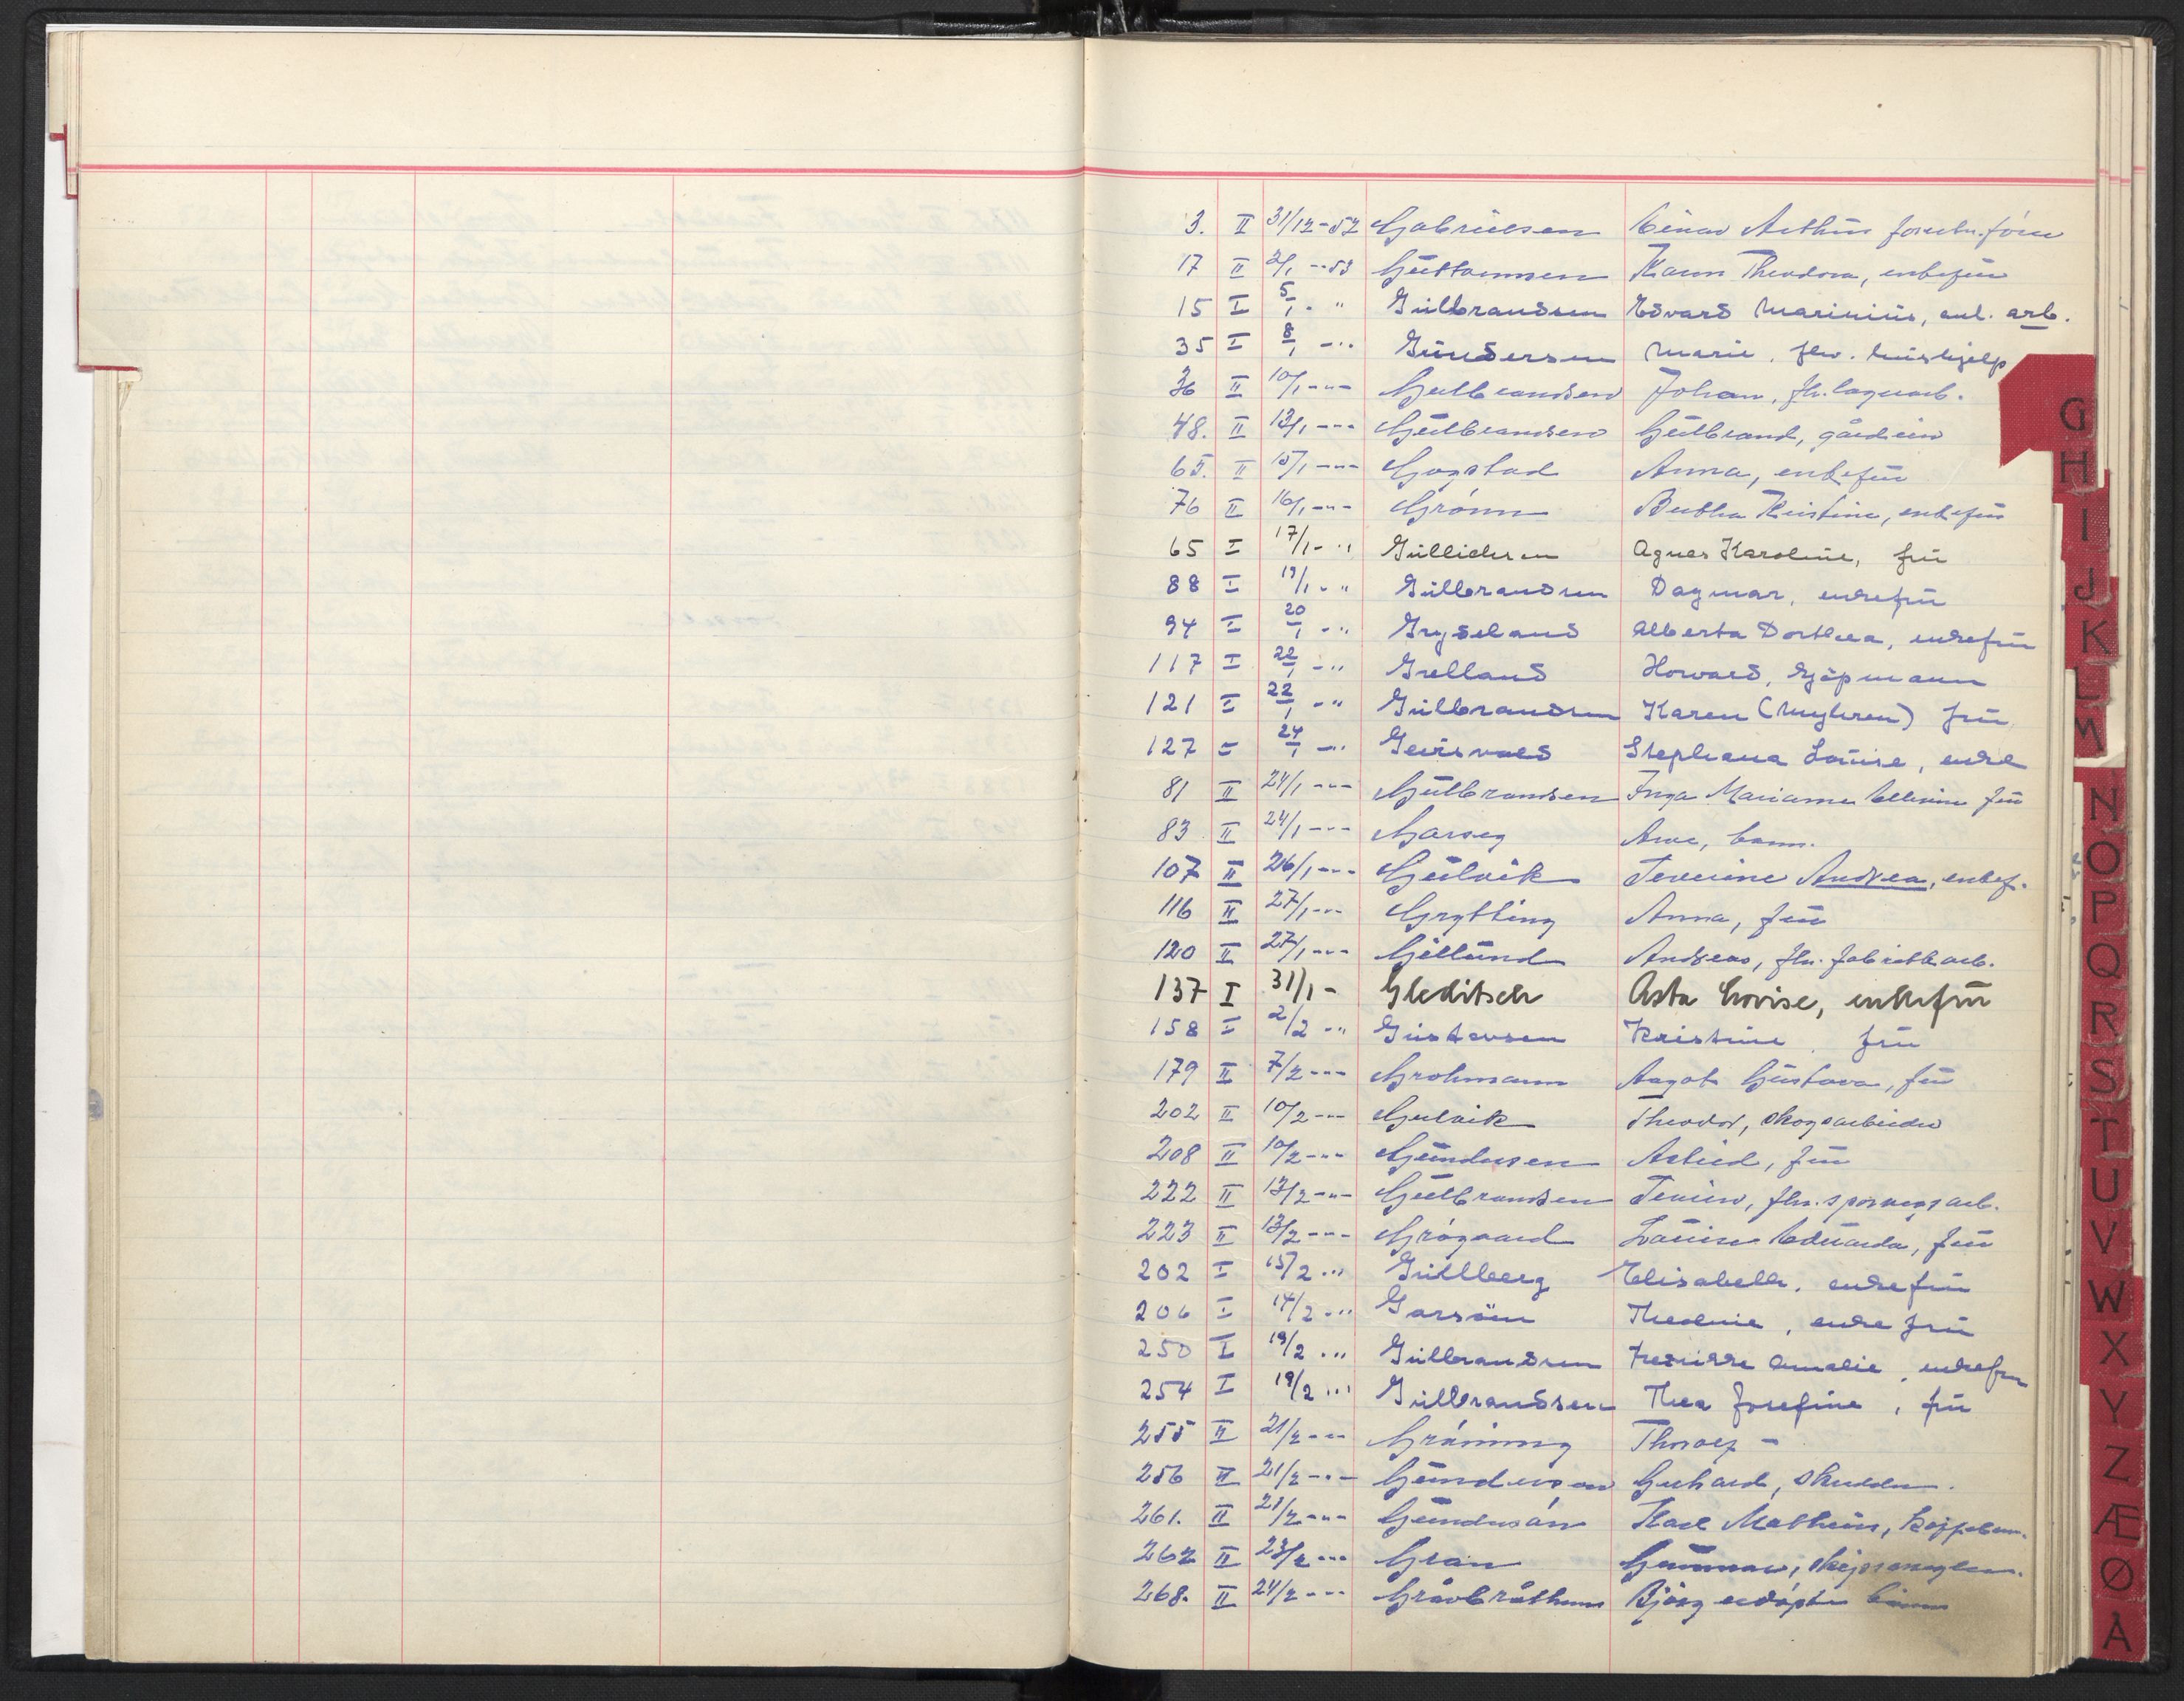 3. II 31/12-52 Gabrielsen Einar Arthur
17 II 2/1 -- 53 Gustavsen Karen Theodora, enkefru
15 I 5/1 - " Gulbrandsen Edvard Marinius, anl. arb.
35 I 8/1 - " Gundersen Marie, fhv. hushjelp
36 II 10/1 - " - Gulbrandsen Johan, fh. lagerarb.
48. II 13/1 - " - Gulbrandsen Gulbrand, gårdeier
65. II 15/1 - " - Gogstad Anna, enkefru
76 II 16/1 - " - Grønn Bertha Kristine, enkefru
65 I 17/1 - " Gullichsen Agnes Karoline, fru
88 I 19/1 - " Gulbrandsen Dagmar, enkefru
94 I 20/1 - " Gryseland Alberta Dorthea, enkefru
117 I 22/1 - " Grelland Howard, kjøpmann
121 I 22/1 - " Gulbrandsen Karen (Myhren) fru
127 - 24/1 - " Stephana Louise, enke
81 II 24/1 - " - Gulbrandsen Inga Marianne fru
83 II 24/1 - " - Garseg Arve, barn.
107 II 26/1 - " - Gulvik Severine Andrea, enkef.
116 II 27/1 - " - Grytting Anna, fru
120 II 27/1 - " - Gillund Andreas, fhv. fabrikkarb.
137 I 31/1 - Gleditsch Asta Lovise, enkefru
158 I 2/2 - " Gustavsen Kristine, fru
179 II 7/2 - " - Grohmann Aagot Gustava, fru
202 II 10/2 - " - Gulvik Theodor, skogsarbeider
208 II 10/2 - " - Gundersen Astrid, fru
222 II 13/2 - " - Gulbrandsen fhv. sporvegsarb.
223 II 13/2 - " - Grøgaard Louise Edvarda, fru
202 I 15/2 - " Gullberg Elisabeth, enkefru
206 I 14/2 - " Garsøen enkefru
250 I 19/2 - " Gulbrandsen Fredrikke Amalie, enkefru
254 I 19/2 - " Gulbrandsen Thea Josefine, fru
255 II 21/2 - " - Grønning Thoralf -
256 II 21/2 - " - Gundersen Gerhard, skredder.
261. II 21/2 - " - Gundersen Karl Matheus,
262 II 23/2 - " - Gran Gunnar, skipsmegler.
268. II 24/2 - " - Gråbråthen Bjørg udøpt barn
G
H
I
J
K
L
M
N
O
P
Q
R
S
T
U
V
W
X
Y
Z
Æ
Ø
A